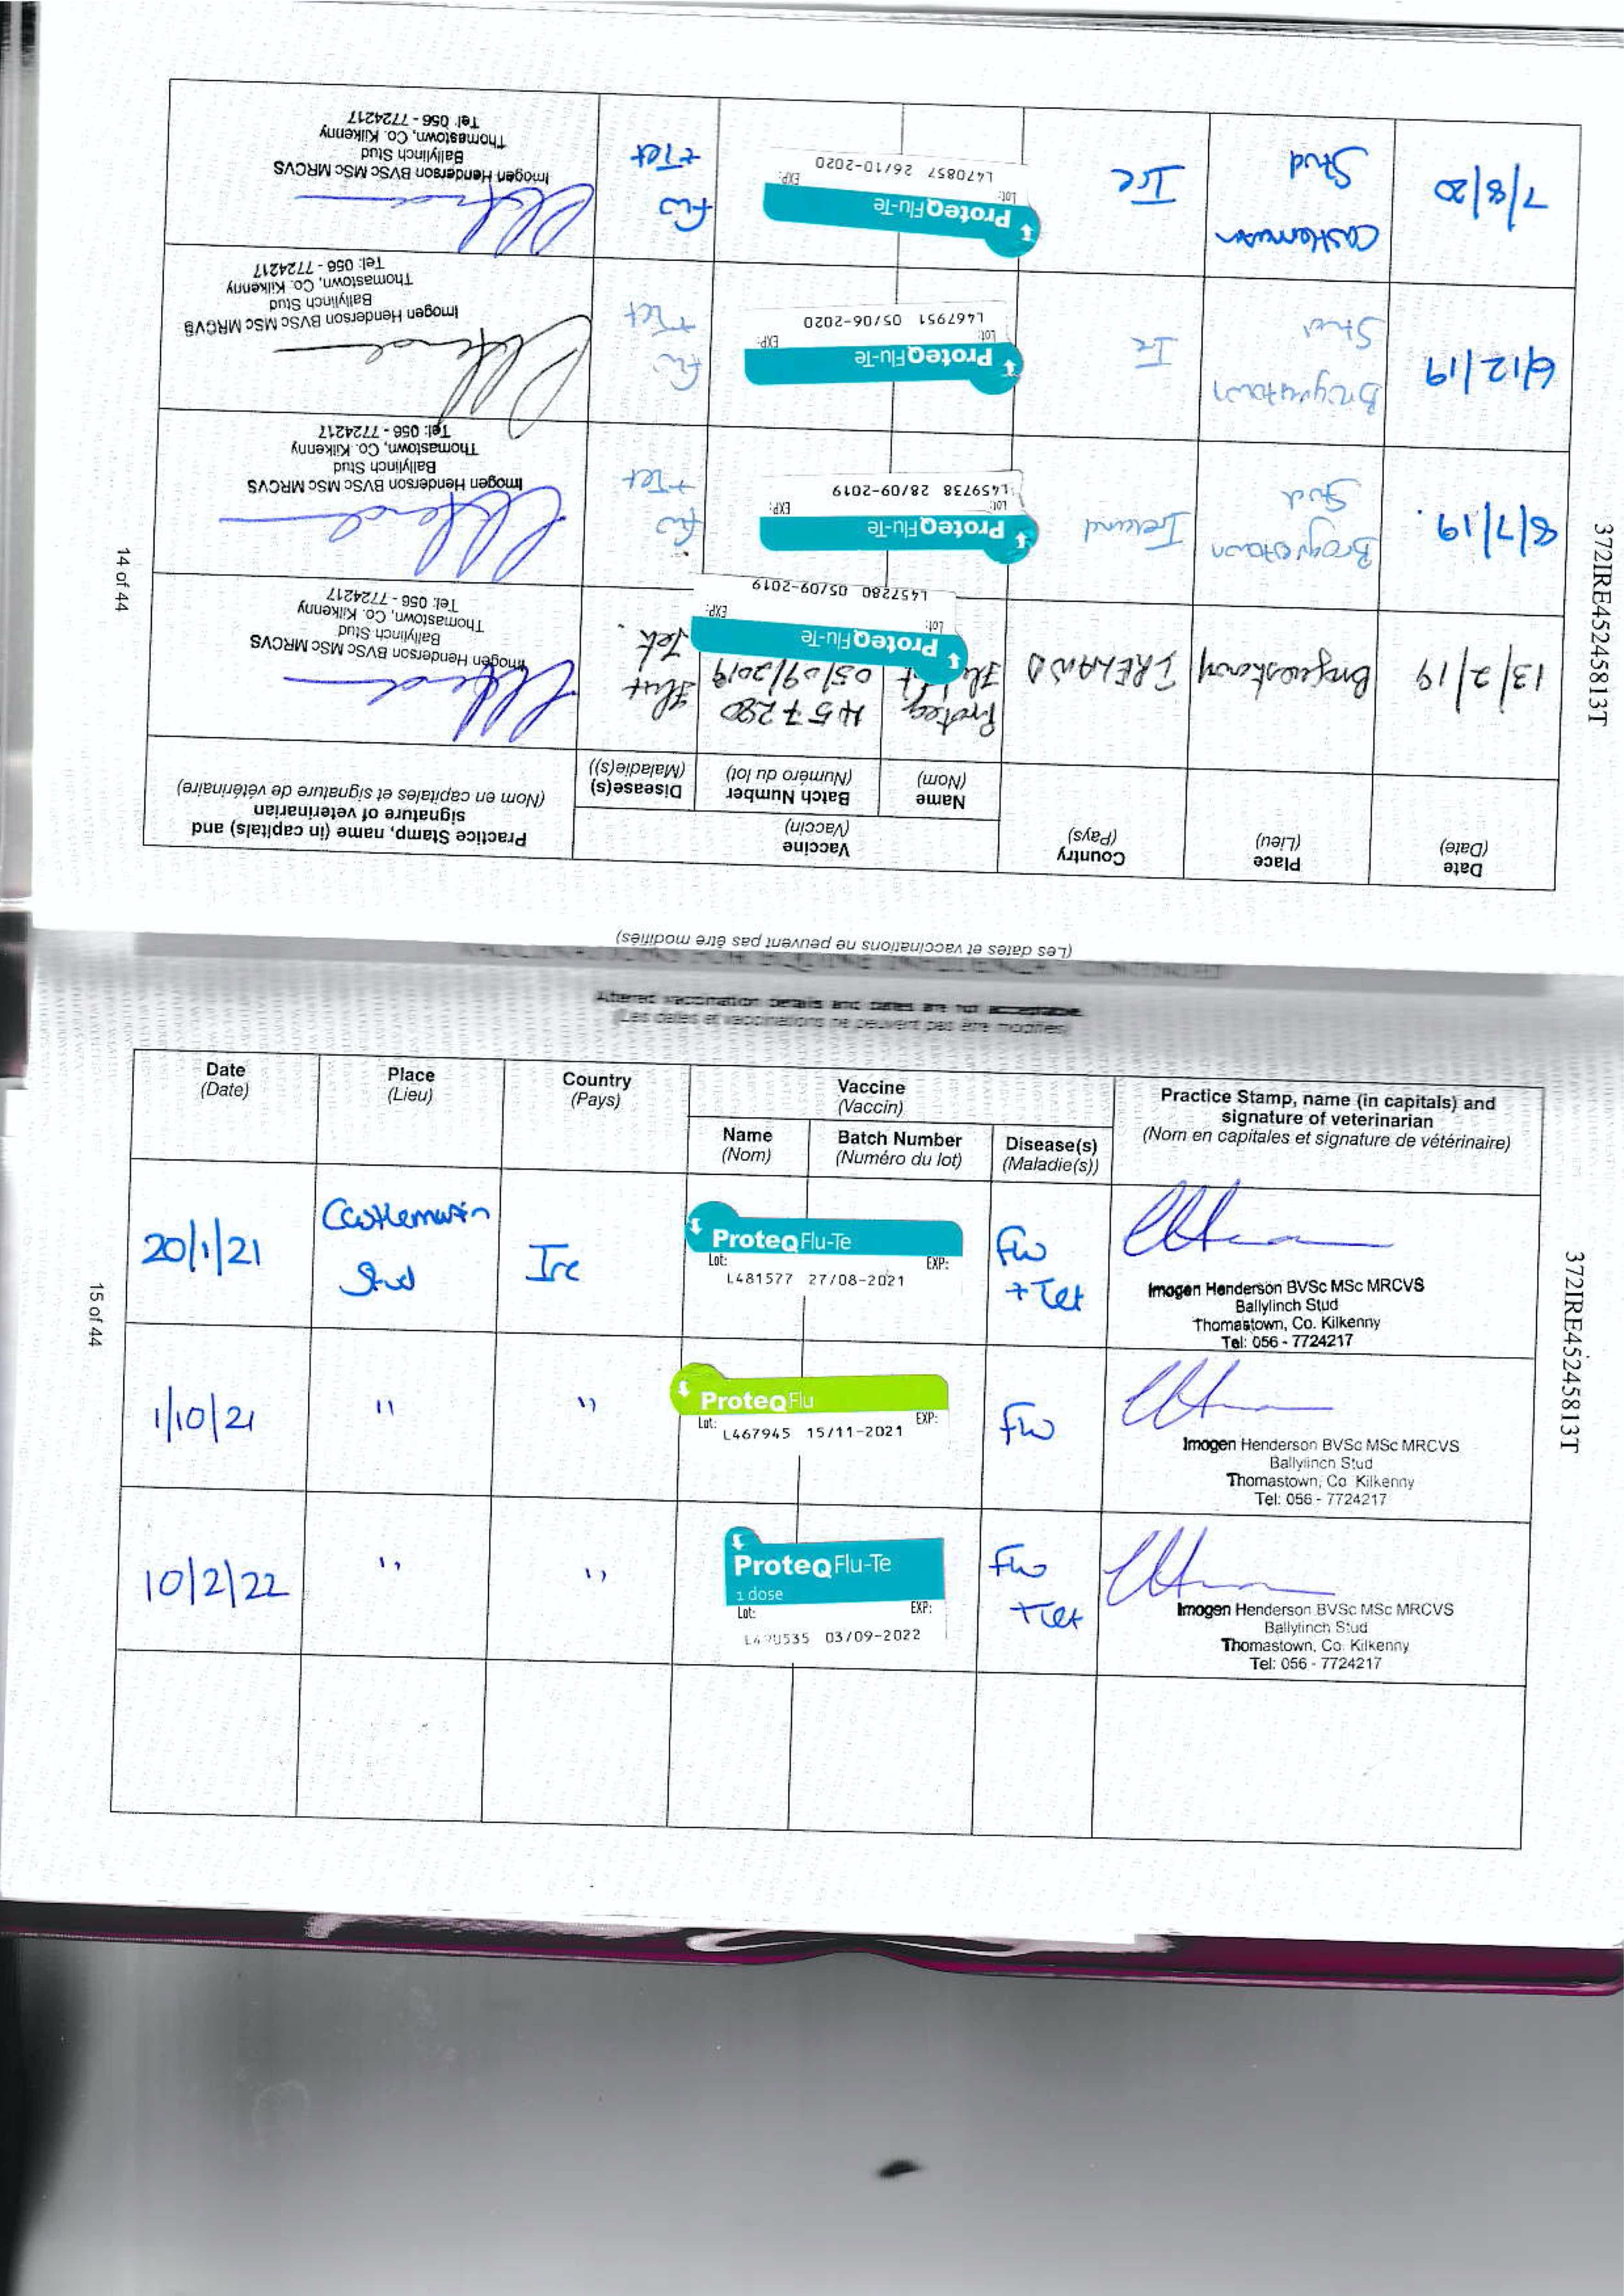 (Les dates et vaccinations ne peuvent pas être modifiés)
Date
(Date)
Place
(Lieu)
Country
(Pays)
Vaccine
(Vaccin)
Name
(Nom)
Batch Number
(Numéro du lot)
Disease(s)
(Maladie(s))
Practice Stamp, name (in capitals) and
signature of veterinarian
(Nom en capitales et signature de vétérinaire)
13/2/19
IRELAND
Proteq
457280
05/09/2019
Tet.
ProteqFlu-Te
Lot: EXP:
L457280 05/09-2019
Imogen Henderson BVSc MSc MRCVS
Ballylinch Stud
Thomastown, Co. Kilkenny
Tel: 056 - 7724217
8/7/19.
Stud
Ireland
ProteqFlu-Te
Lot: EXP:
L459738 28/09-2019
Flu
+Tet
Imogen Henderson BVSc MSc MRCVS
Ballylinch Stud
Thomastown, Co. Kilkenny
Tel: 056 - 7724217
6/12/19
Stud
Ire
ProteqFlu-Te
Lot: EXP:
L467951 05/06-2020
Flu
+Tet
Imogen Henderson BVSc MSc MRCVS
Ballylinch Stud
Thomastown, Co. Kilkenny
Tel: 056 - 7724217
7/8/20
Castlemartin
Stud
Ire
ProteqFlu-Te
Lot: EXP:
L470857 26/10-2020
Flu
+Tet
Imogen Henderson BVSc MSc MRCVS
Ballylinch Stud
Thomastown, Co. Kilkenny
Tel: 056 - 7724217
14 of 44
372IRE45245813T
Altered vaccination details and dates are not acceptable
(Les dates et vaccinations ne peuvent pas être modifiés)
Date
(Date)
Place
(Lieu)
Country
(Pays)
Vaccine
(Vaccin)
Name
(Nom)
Batch Number
(Numéro du lot)
Disease(s)
(Maladie(s))
Practice Stamp, name (in capitals) and
signature of veterinarian
(Nom en capitales et signature de vétérinaire)
20/1/21
Castlemartin
Stud
Ire
ProteqFlu-Te
Lot: EXP:
L481577 27/08-2021
Flu
+Tet
Imogen Henderson BVSc MSc MRCVS
Ballylinch Stud
Thomastown, Co. Kilkenny
Tel: 056 - 7724217
1/10/21
"
"
ProteqFlu
Lot: EXP:
L467945 15/11-2021
Flu
Imogen Henderson BVSc MSc MRCVS
Ballylinch Stud
Thomastown, Co Kilkenny
Tel: 056 - 7724217
10/2/22
"
"
ProteqFlu-Te
1 dose
Lot: EXP:
03/09-2022
Flu
+Tet
Imogen Henderson BVSc MSc MRCVS
Ballylinch Stud
Thomastown, Co. Kilkenny
Tel: 056 - 7724217
15 of 44
372IRE45245813T